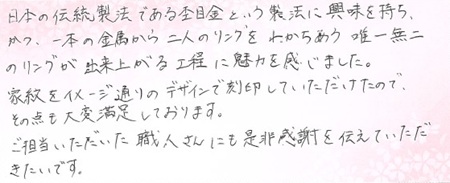 日本の伝統製法である杢目金という製法に興味を持ち、
かつ、一本の金属から二人のリングをわかちあう唯一無二
のリングが出来上がる工程に魅力を感じました。
家紋をイメージ通りのデザインで刻印していただけたので、
その点も大変満足しております。
ご担当いただいた職人さんにも是非感謝を伝えていただ
きたいです。